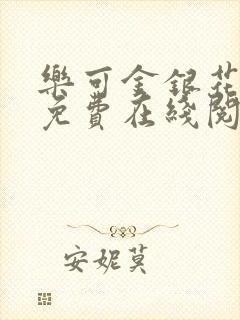 樂可金銀花
免費在綫閱
安妮莫